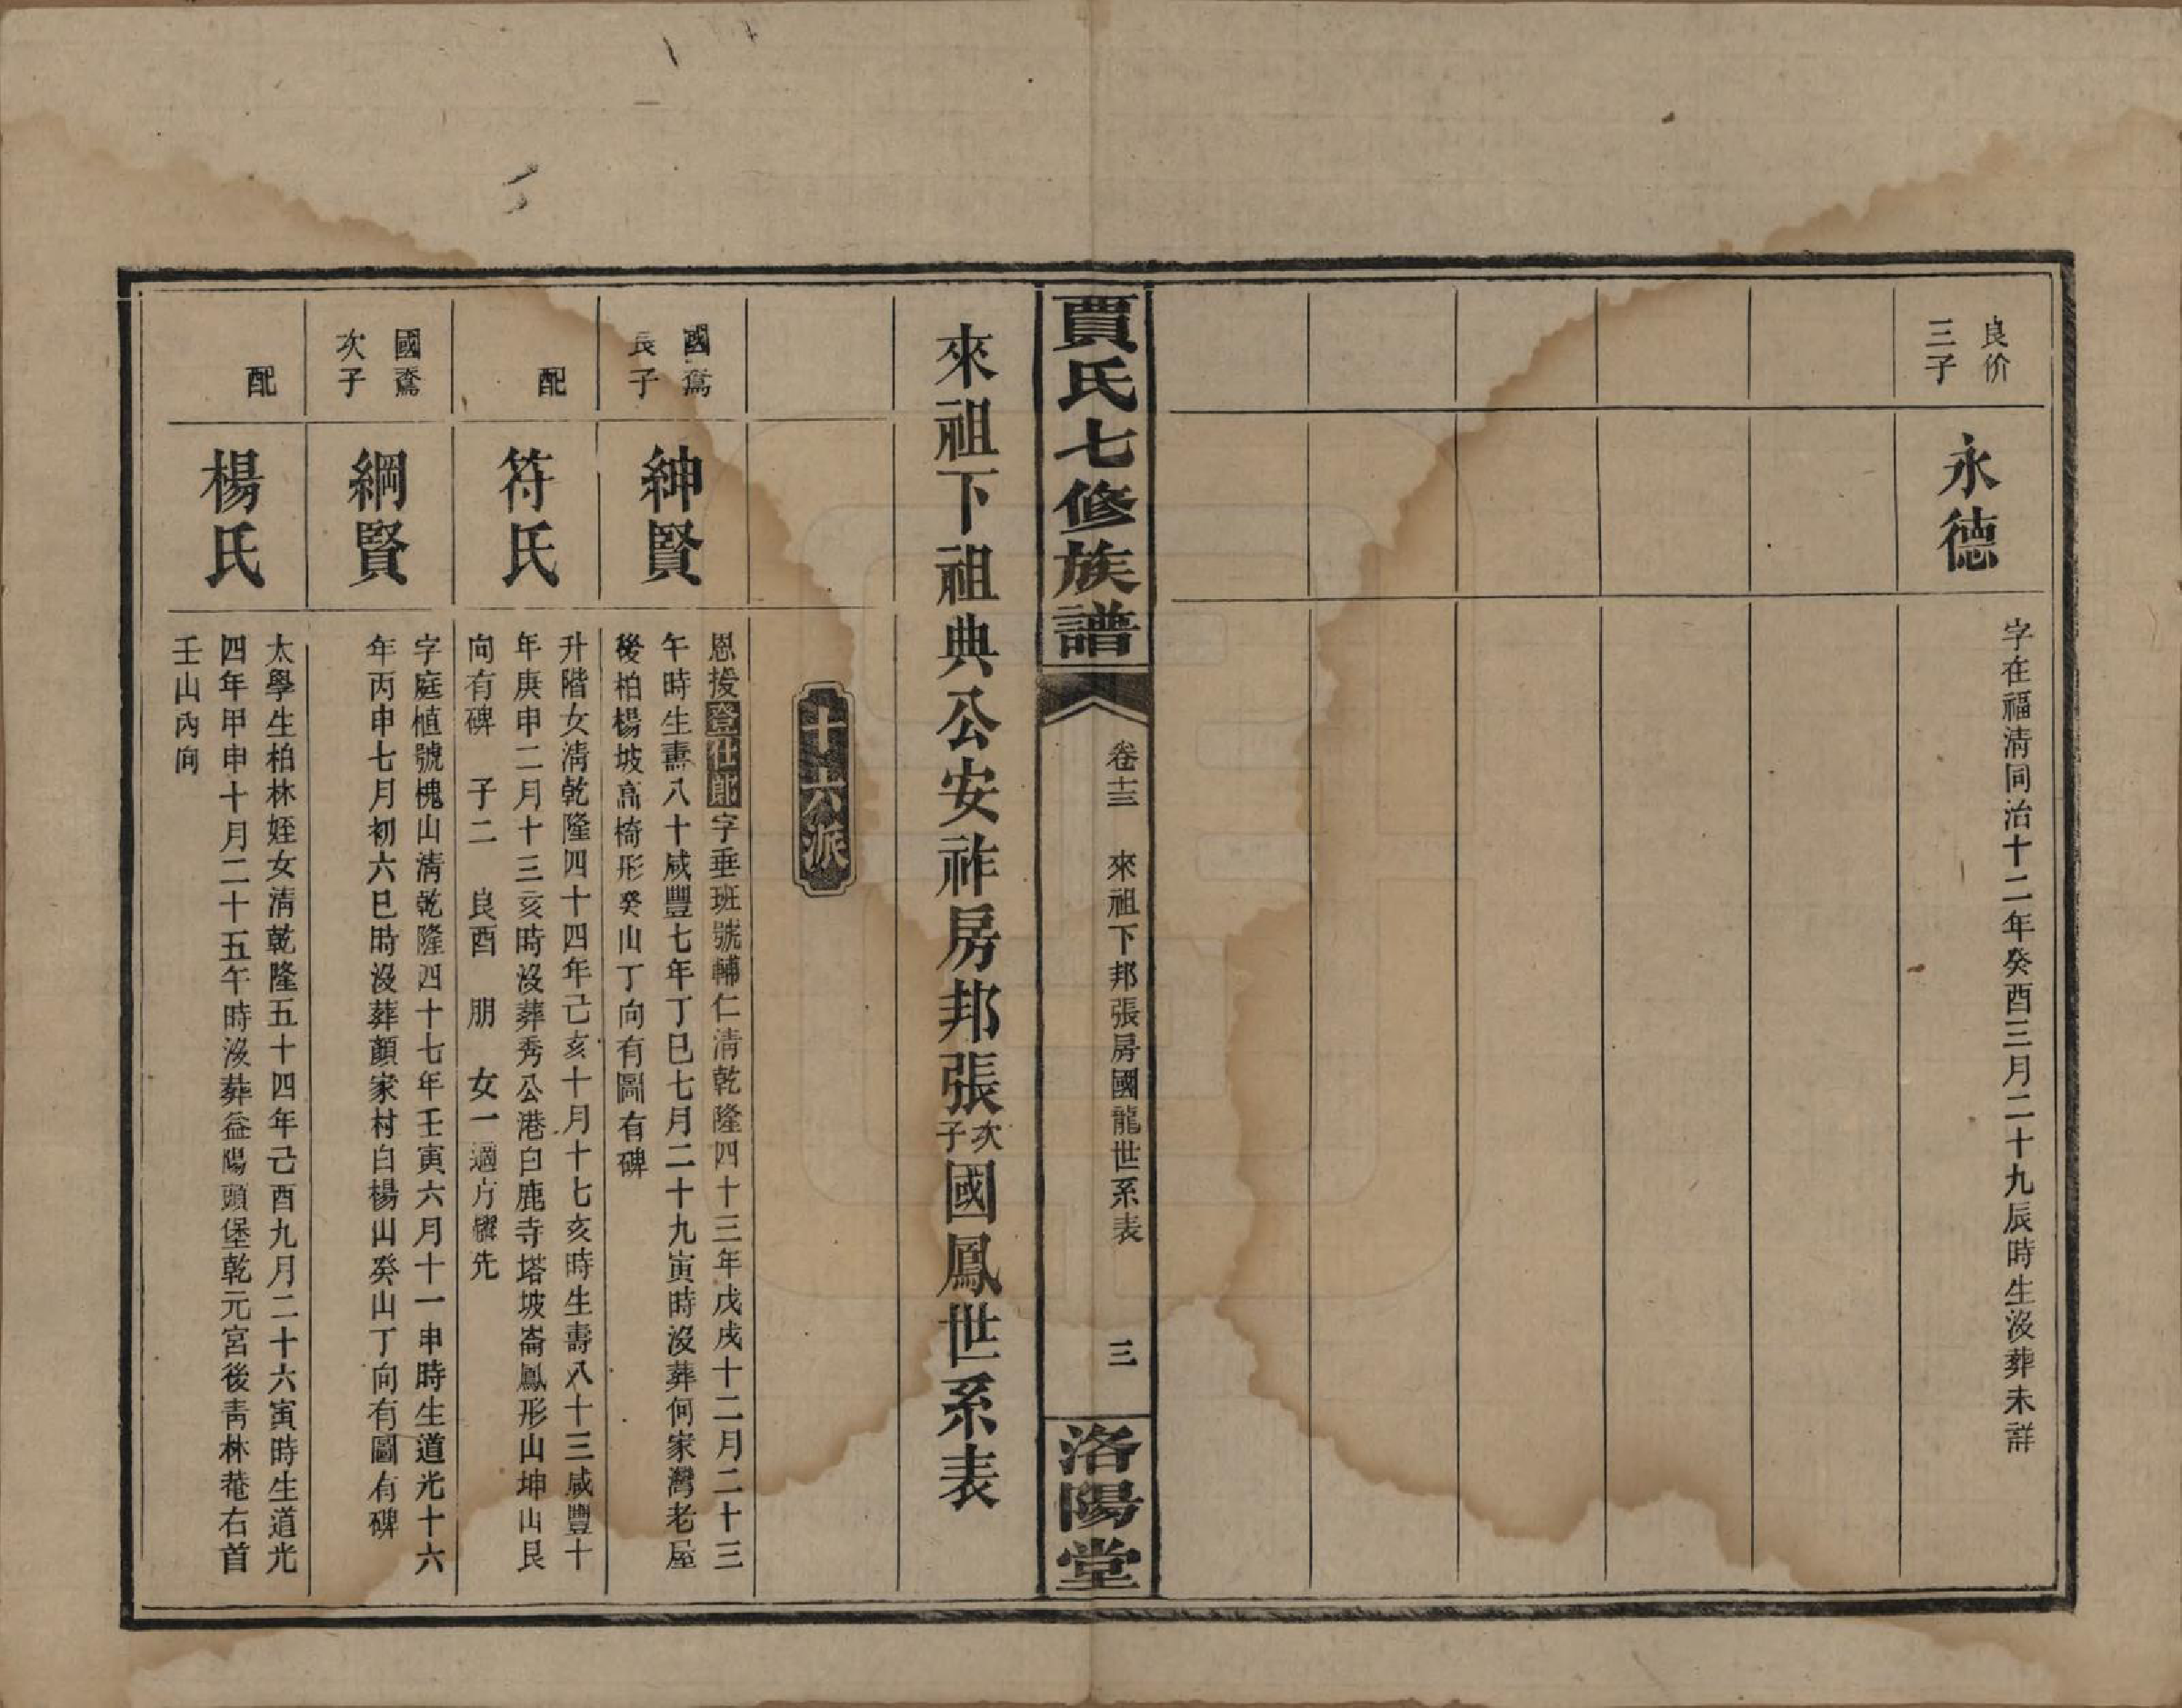 良价
三子
永德
字在福淸同治十二年癸酉三月二十九辰時生沒葬未詳
賈氏七修族譜
卷十三
來祖下邦張房國龍世系表
三
洛陽堂
來祖下祖典公安祚房邦張次子國鳳世系表
十六派
國鶱
長子
紳賢
恩授登仕郎字垂班號輔仁淸乾隆四十三年戊戌十二月二十三
午時生壽八十咸豐七年丁巳七月二十九寅時沒葬何家灣老屋
後柏楊坡高椅形癸山丁向有圖有碑
配
符氏
升階女淸乾隆四十四年己亥十月十七亥時生壽八十三咸豐十
年庚申二月十三亥時沒葬秀公港白鹿寺塔坡崙鳳形山坤山艮
向有碑 子二 良酉 朋 女一適方耀先
國鶱
次子
綱賢
字庭植號槐山淸乾隆四十七年壬寅六月十一申時生道光十六
年丙申七月初六巳時沒葬顏家村白楊山癸山丁向有圖有碑
配
楊氏
太學生柏林姪女淸乾隆五十四年己酉九月二十六寅時生道光
四年甲申十月二十五午時沒葬益陽頭堡乾元宮後靑林菴右首
壬山丙向